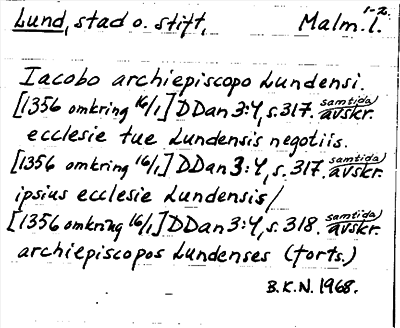 Lund, stad o. stift, Malm. l. 1-2.
Iacobo archiepiscopo Lundensi.
[1356 omkring 16/1] DDan 3:4, s. 317. samtida avskr.
ecclesie tue Lundensis negotiis.
[1356 omkring 16/1] DDan 3:4, s. 317. samtida avskr.
ipsius ecclesie Lundensis/
[1356 omkring 16/1] DDan 3:4, s. 318. samtida avskr.
archiepiscopos Lundenses (forts.)
B.K.N. 1968.